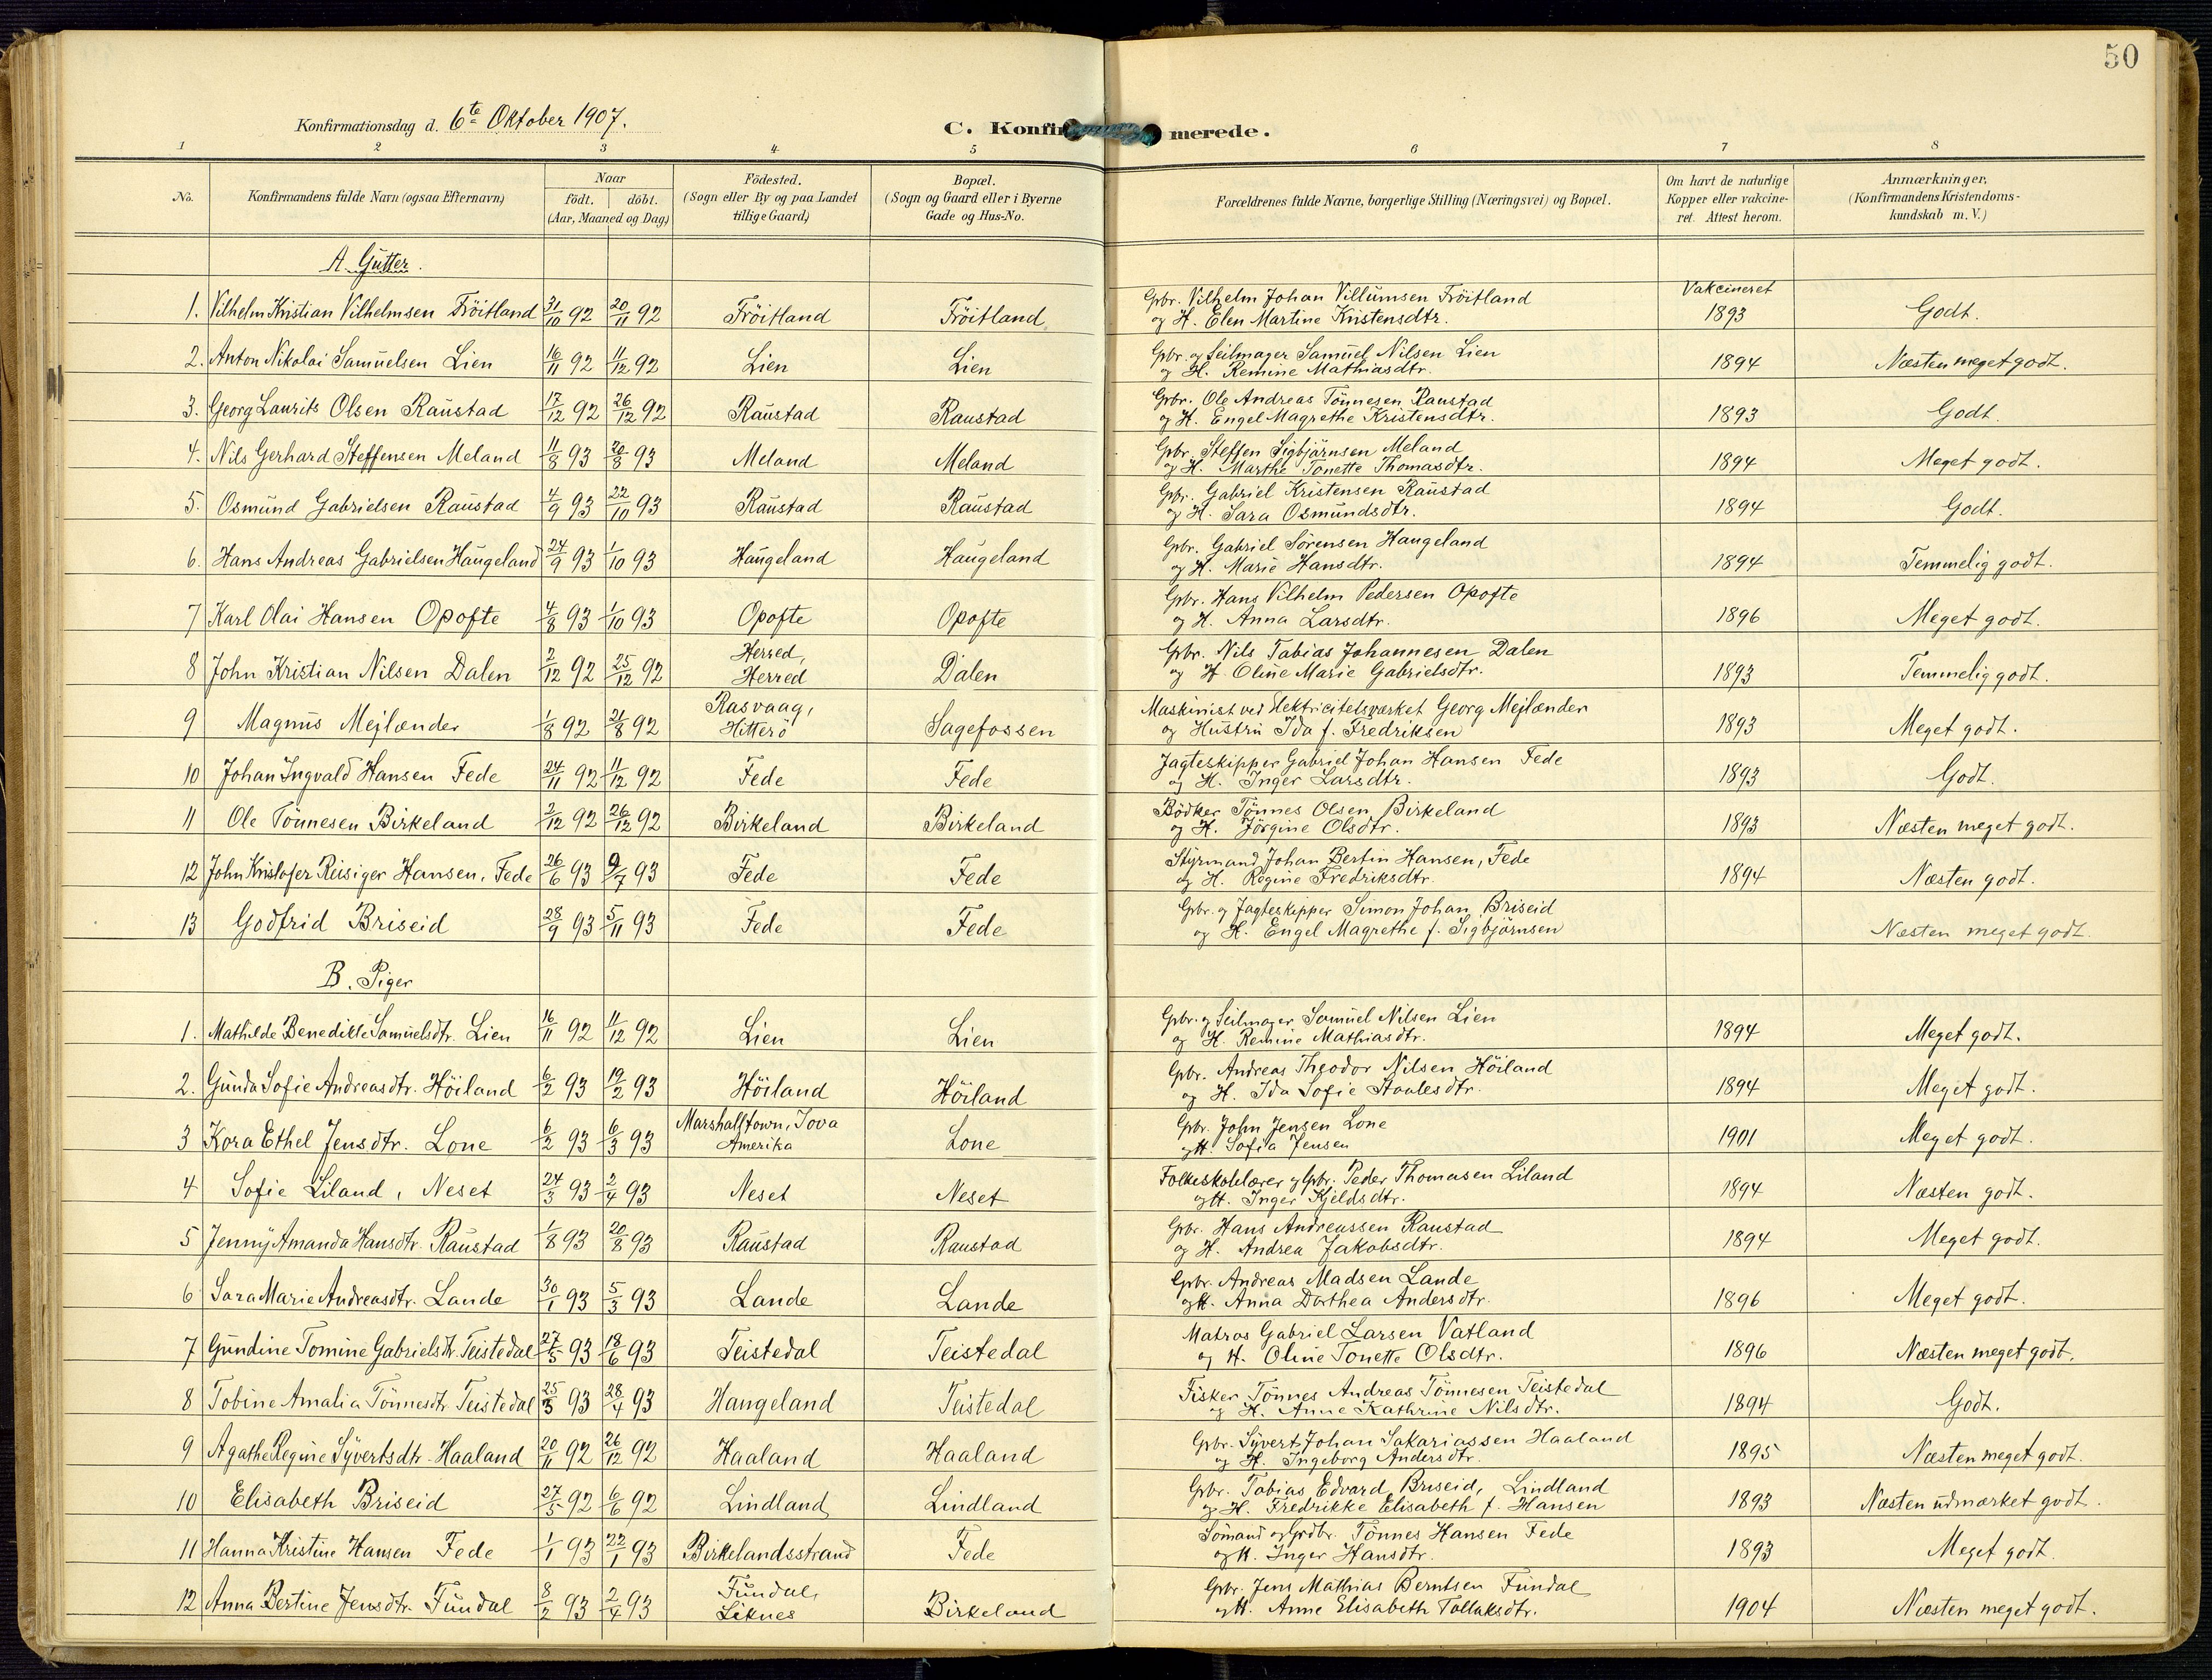 50
Konfirmationsdag d. 6te Oktober 1907.
C. Konfirmerede.
1 2 3 4 5 6 7 8
No. Konfirmandens fulde Navn (ogsaa Efternavn) Naar født. døbt. (Aar, Maaned og Dag) Fødested. (Sogn eller By og paa Landet tillige Gaard) Bopæl. (Sogn og Gaard eller i Byerne Gade og Hus-No. Forældrenes fulde Navne, borgerlige Stilling (Næringsvei) og Bopæl. Om havt de naturlige Kopper eller vakcineret. Attest herom. Anmærkninger, (Konfirmandens Kristendomskundskab m. V.)
A. Gutter.
1. Vilhelm Kristian Vilhelmsen Fröitland 31/10 92 20/11 92 Fröitland Fröitland Gbr. Vilhelm Johan Villumsen Fröitland og H. Elen Martine Kristensdtr. Vakcineret 1893 Godt.
2. Anton Nikolai Samuelsen Lien 16/11 92 11/12 92 Lien Lien Gbr. og Seilmager Samuel Nilsen Lien og H. Remine Mathiasdtr. 1894 Næsten meget godt.
3. Georg Laurits Olsen Raustad 17/12 92 26/12 92 Raustad Raustad Gbr. Ole Andreas Tönnesen Raustad og H. Engel Magrethe Kristensdtr. 1893 Godt
4. Nils Gerhard Steffensen Meland 11/8 93 20/8 93 Meland Meland Gbr. Steffen Sigbjörnsen Meland og H. Marthe Tonette Thomasdtr. 1894 Meget godt.
5. Osmund Gabrielsen Raustad 4/9 93 22/10 93 Raustad Raustad Gbr. Gabriel Kristensen Raustad og H. Sara Osmundsdtr. 1894 Godt.
6. Hans Andreas Gabrielsen Haugeland 24/9 93 1/10 93 Haugeland Haugeland Gbr. Gabriel Sörensen Haugeland og H. Marie Hansdtr. 1894 Temmelig godt.
7 Karl Olai Hansen Opofte 4/8 93 1/10 93 Opofte Opofte Gbr. Hans Vilhelm Pedersen Opofte og H. Anna Larsdtr. 1896 Meget godt.
8 John Kristian Nilsen Dalen 2/12 92 25/12 92 Herred, Herred Dalen Gbr. Nils Tabias Johannesen Dalen og H. Oline Marie Gabrielsdtr. 1893 Temmelig godt.
9 Magnus Mejlænder 1/8 92 21/8 92 Rasvaag, Hitterö Sagefossen Maskinist ved Elektricitetsværket Georg Mejlænder og Hustru Ida f. Fredriksen 1893 Meget godt.
10 Johan Ingvald Hansen Fede 24/11 92 11/12 92 Fede Fede Jagteskipper Gabriel Johan Hansen Fede og H. Inger Larsdtr. 1893 Godt.
11 Ole Tönnesen Birkeland 2/12 92 26/12 92 Birkeland Birkeland Bödker Tönnes Olsen Birkeland og H. Jörgine Olsdtr. 1893 Næsten meget godt.
12 John Kristofer Reisiger Hansen, Fede 26/6 93 9/7 93 Fede Fede Styrmand Johan Bertin Hansen, Fede og H. Regine Fredriksdtr. 1894 Næsten godt.
13 Godfrid Briseid 28/9 93 5/11 93 Fede Fede Gbr. og Jagteskipper Simon Johan Briseid og H. Engel Magrethe f. Sigbjörnsen Næsten meget godt.
B. Piger
1. Mathilde Benedikte Samuelsdtr. Lien 16/11 92 11/12 92 Lien Lien Gbr. og Seilmager Samuel Nilsen Lien og H. Remine Mathiasdtr. 1894 Meget godt.
2. Gunda Sofie Andreasdtr. Höiland 6/2 93 19/2 93 Höiland Höiland Gbr. Andreas Theodor Nilsen Höiland og H. Ida Sofie Staalesdtr. 1894 Meget godt.
3 Kora Ethel Jensdtr. Lone 6/2 93 6/3 93 Marshalltown, Iova Amerika Lone Gbr. John Jensen Lone og H. Sofia Jensen 1901 Meget godt.
4 Sofie Liland, Neset 24/3 93 2/4 93 Neset Neset Folkeskolelærer og Gbr. Peder Thomasen Liland og H. Inger Kjeldsdtr. 1894 Næsten godt.
5 Jenny Amanda Hansdtr. Raustad 1/8 93 20/8 93 Raustad Raustad Gbr. Hans Andreassen Raustad og H. Andrea Jakobsdtr. 1894 Meget godt.
6 Sara Marie Andreasdtr. Lande 30/1 93 5/3 93 Lande Lande Gbr. Andreas Madsen Lande og H. Anna Dorthea Andersdtr. 1896 Meget godt.
7 Gundine Tomine Gabrielsdtr. Teistedal 27/5 93 18/6 93 Teistedal Teistedal Matros Gabriel Larsen Vatland og H. Oline Tonette Olsdtr. 1896 Næsten meget godt.
8 Tobine Amalia Tönnesdtr. Teistedal 25/3 93 28/4 93 Haugeland Teistedal Fisker Tönnes Andreas Tönnesen Teistedal og H. Anne Kathrine Nilsdtr. 1894 Godt.
9 Agathe Regine Syvertsdtr. Haaland 20/11 92 26/12 92 Haaland Haaland Gbr. Syvert Johan Sakariassen Haaland og H. Ingeborg Andersdtr. 1895 Næsten meget godt.
10 Elisabeth Briseid 27/5 92 6/6 92 Lindland Lindland Gbr. Tobias Edvard Briseid, Lindland og H. Fredrikke Elisabeth f. Hansen 1893 Næsten udmærket godt.
11 Hanna Kristine Hansen Fede 1/1 93 22/1 93 Birkelandsstrand Fede Sömand og Grdbr. Tönnes Hansen Fede og H. Inger Hansdtr. 1893 Meget godt.
12 Anna Bertine Jensdtr. Fundal 8/2 93 2/4 93 Fundal, Liknes Birkeland Gbr. Jens Mathias Berntsen Fundal og H. Anne Elisabeth Tollaksdtr. 1904 Næsten meget godt.